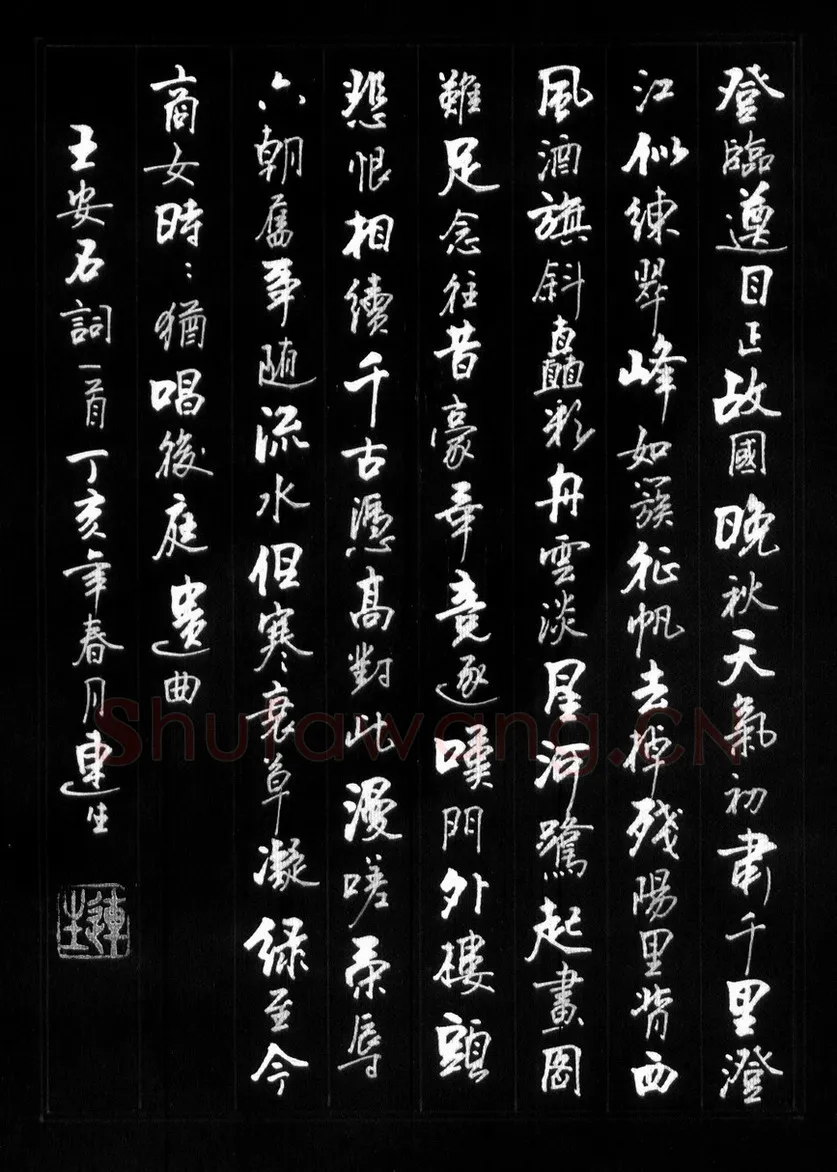 登臨遵目正故國晚秋天氣初肅千里澄
江似練翠峰如簇征帆去棹残陽里背西
風酒旗斜矗彩舟雲淡星河鷺起畫图
難足念往昔豪華竞逐嘆門外樓頭
悲恨相續千古憑高對此漫嗟荣辱
六朝舊事随流水但寒衰草凝緑至今
商女時:猶唱後庭遺曲
王安石詞一首丁亥年春月連生
連生
Shufawang.CN